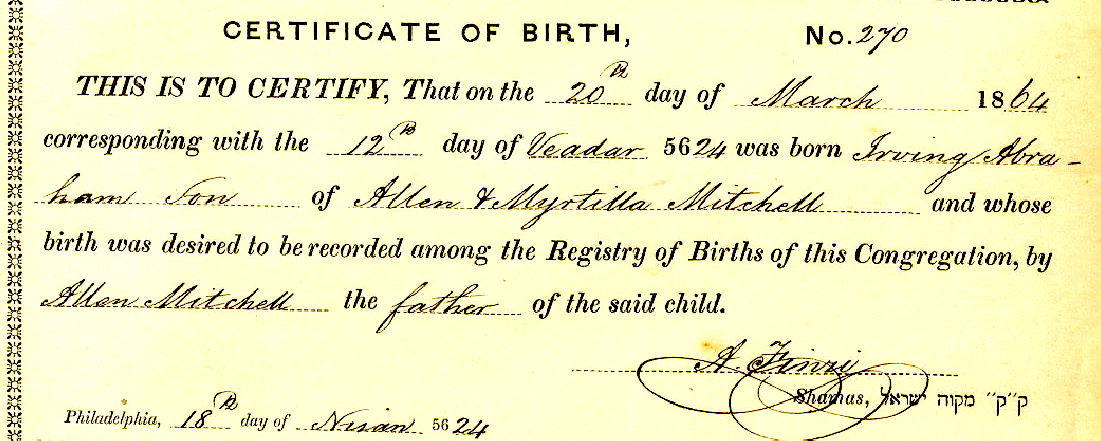 CERTIFICATE OF BIRTH, No. 270
THIS IS TO CERTIFY, That on the 20th day of March 1864
corresponding with the 12th day of Veadar 5624 was born Irving Abra-
ham Son of Allen & Myrtilla Mitchell and whose
birth was desired to be recorded among the Registry of Births of this Congregation, by
Allen Mitchell the father of the said child.
A.
Shamas, ק"ק מקוה ישראל
Philadelphia, 18th day of Nisan 5624